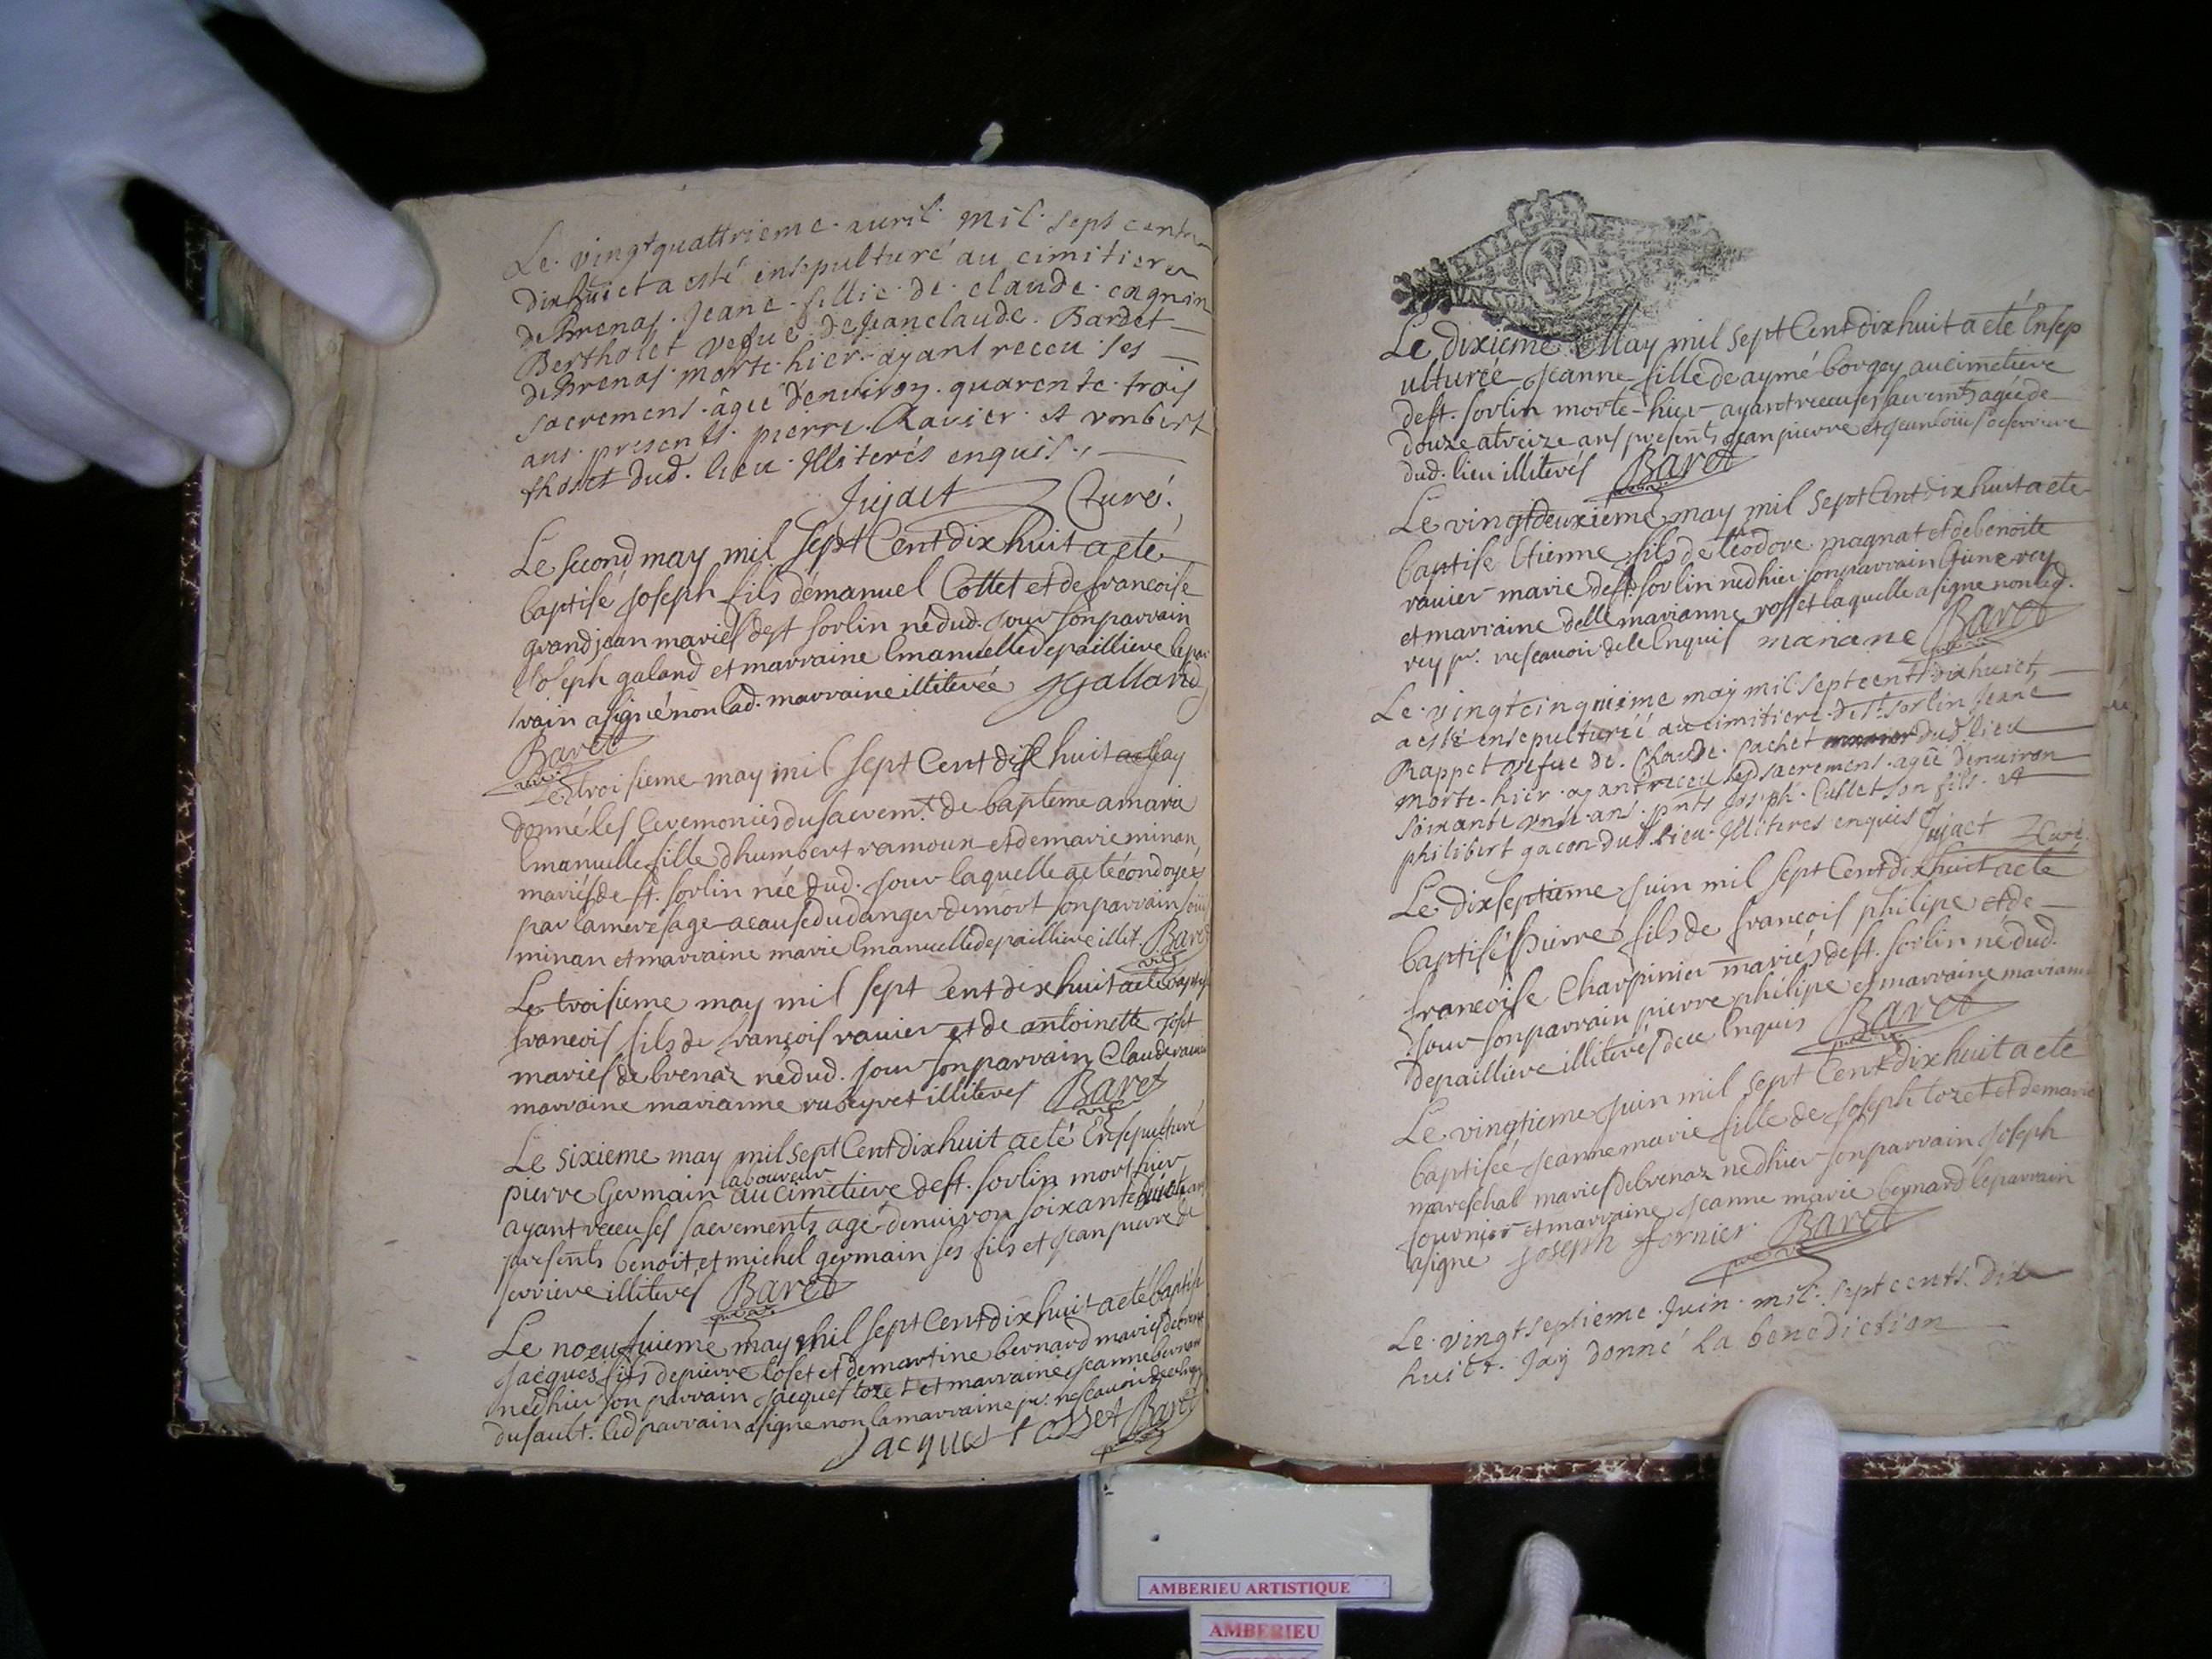 Le vingt quattrieme avril mil sept cent
dixhuict a esté ensepulturé au cimitiere
de Brenas Jeane fillie de claude cagnin
Bertholet vefue de Jean claude Bardet
de Brenas morte hier ayant receu ses
sacremens âgée d'environ quarente trois
ans presents pierre Ravier et vmbert
tholet dud. lieu Illiterés enquis.
Jujact Curé.
Le second may mil sept Cent dix huit a eté
baptisé joseph fils démanuel Cottet et de francoise
grand jean mariés de st sorlin né dud. jour son parrain
joseph galand et marraine Emanuelle depailliere le par
rain a signé non lad. marraine illiterée JGalland
Baret
vic
Le troisieme may mil sept Cent dix huit jay
donné les Ceremonies du sacremt. de baptême a marie
Emanuelle fille dhumbert ramoux et de marie minan
mariés de st. sorlin née dud. jour laquelle a eté ondoyée
par la mere sage a cause du danger de mort son parrain
minan et marraine marie Emanuelle depailliere illit. Baret
vic
Le troisieme may mil sept Cent dix huit a eté baptisé
francois fils de françois rauier et de antoinette
mariés de brenaz né dud. jour son parrain Claude rauier
marraine marianne rubeyret illiterés Baret
vic
Le sixieme may mil sept Cent dix huit a eté Ensepulturé
laboureur
pierre Germain au cimetiere de st. sorlin mort hier
ayant receu ses sacrements agé denuiron soixante huict ans
presents benoit et michel germain ses fils et jean pierre de
serriere illiterés Baret
Le noeufuieme may mil sept Cent dix huit a eté baptisé
jacques fils de pierre loset et de martine bernard mariés de brenaz
né dhier son parrain jacques lozet et marraine jeanne bernard
du sault. led parrain a signe non la marraine pr. ne scauoir de ce enquis
Jacques Losset Baret
Le dixieme May mil sept Cent dix huit a eté Ensep
ulturée jeanne fille de aymé borgey au cimetiere
de st. sorlin morte hier ayant receu ses sacremts agée de
douze a treize ans presents jean pierre et jean louis de serriere
dud. lieu illiterés Baret
Le vingt deuxiéme may mil sept Cent dix huit a eté
baptisé Etienne fils de téodore magnat et de benoite
rauier mariés de st. sorlin né dhier son parrain Etiene rey
et marraine delle marianne rosset laquelle a signe non led.
rey pr. ne scauoir de ce Enquis mariane Baret
Le vingt cinquieme may mil sept cent dix huict
a esté ensepulturéé au cimitiere de st. sorlin Jeane
Rappet vefue de Claude pachet dud. lieu
morte hier ayant receu ses sacremens agée d'enuiron
soixante onze ans pnts Joseph Cullet son fils et
philibert gacon dud. lieu Illiteres enquis Jujact Curé.
Le Dix septieme juin mil sept Cent dix huit a eté
baptisé pierre fils de francois philipe et de
francoise Charpinier mariés de st. sorlin né dud.
jour son parrain pierre philipe et marraine marianne
depailliere illiterés de ce Enquis Baret
Le vingtieme juin mil sept Cent dix huit a eté
baptisée jeanne marie fille de joseph lozet et de marie
mareschal mariés de brenaz né dhier son parrain joseph
fournier et marraine jeanne marie bernard le parrain
a signe joseph fornier Baret
Le vingt septieme Juin mil sept cents dix
huict Jay donné la benediction
AMBERIEU ARTISTIQUE
AMBERIEU